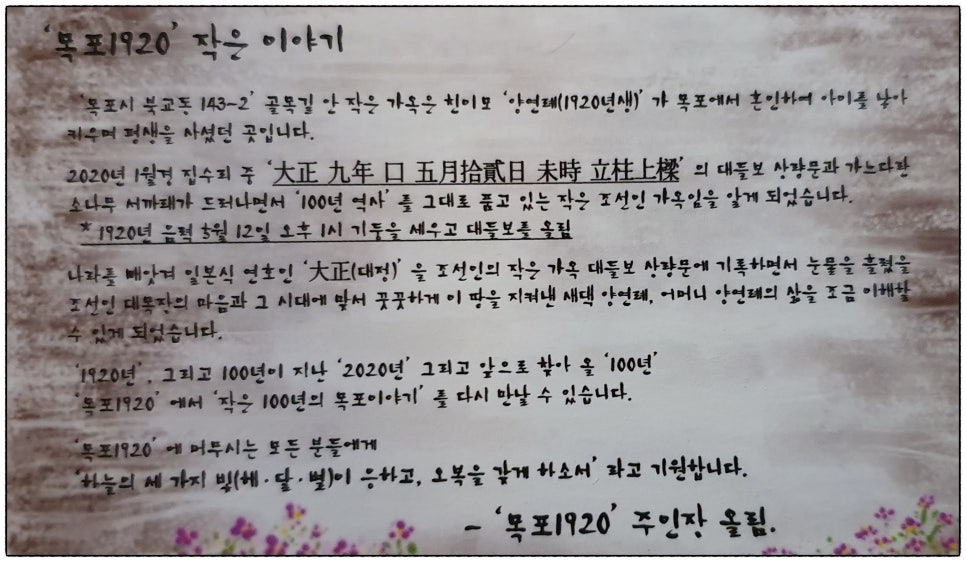 '목포1920' 작은 이야기
'목포시 북교동 143-2' 골목길 안 작은 가옥은 친이모 '양연례(1920년생)' 가 목포에서 혼인하여 아이를 낳아
키우며 평생을 사셨던 곳입니다.
2020년 1월경 집수리 중 '大正 九年 口 五月拾貳日 未時 立柱上樑' 의 대들보 상량문과 가느다란
소나무 서까래가 드러나면서 '100년 역사' 를 그대로 품고 있는 작은 조선인 가옥임을 알게 되었습니다.
* 1920년 음력 5월 12일 오후 1시 기둥을 세우고 대들보를 올림
나라를 빼앗겨 일본식 연호인 '大正(대정)' 을 조선인의 작은 가옥 대들보 상량문에 기록하면서 눈물을 흘렸을
조선인 대목장의 마음과 그 시대에 맞서 꿋꿋하게 이 땅을 지켜낸 새댁 양연례, 어머니 양연례의 삶을 조금 이해할
수 있게 되었습니다.
'1920년', 그리고 100년이 지난 '2020년' 그리고 앞으로 찾아 올 '100년'
'목포1920' 에서 '작은 100년의 목포이야기' 를 다시 만날 수 있습니다.
'목포1920' 에 머무시는 모든 분들에게
'하늘의 세 가지 빛(해·달·별)이 응하고, 오복을 갖게 하소서' 라고 기원합니다.
- '목포1920' 주인장 올림.